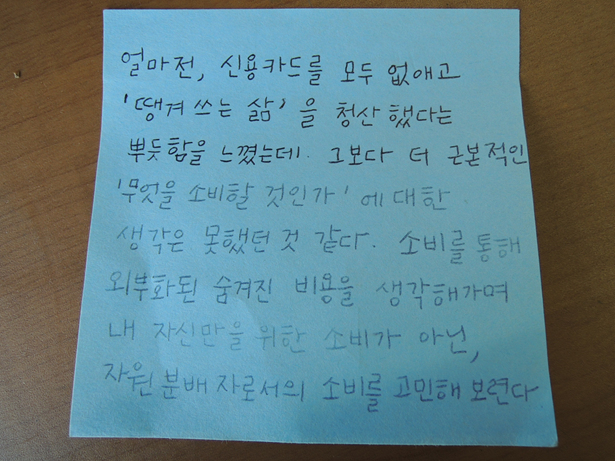 얼마전, 신용카드를 모두 없애고
'땡겨 쓰는 삶'을 청산했다는
뿌듯함을 느꼈는데. 그보다 더 근본적인
'무엇을 소비할 것인가'에 대한
생각은 못했던 것 같다. 소비를 통해
외부화된 숨겨진 비용을 생각해가며
내 자신만을 위한 소비가 아닌,
자원 분배자로서의 소비를 고민해 보련다